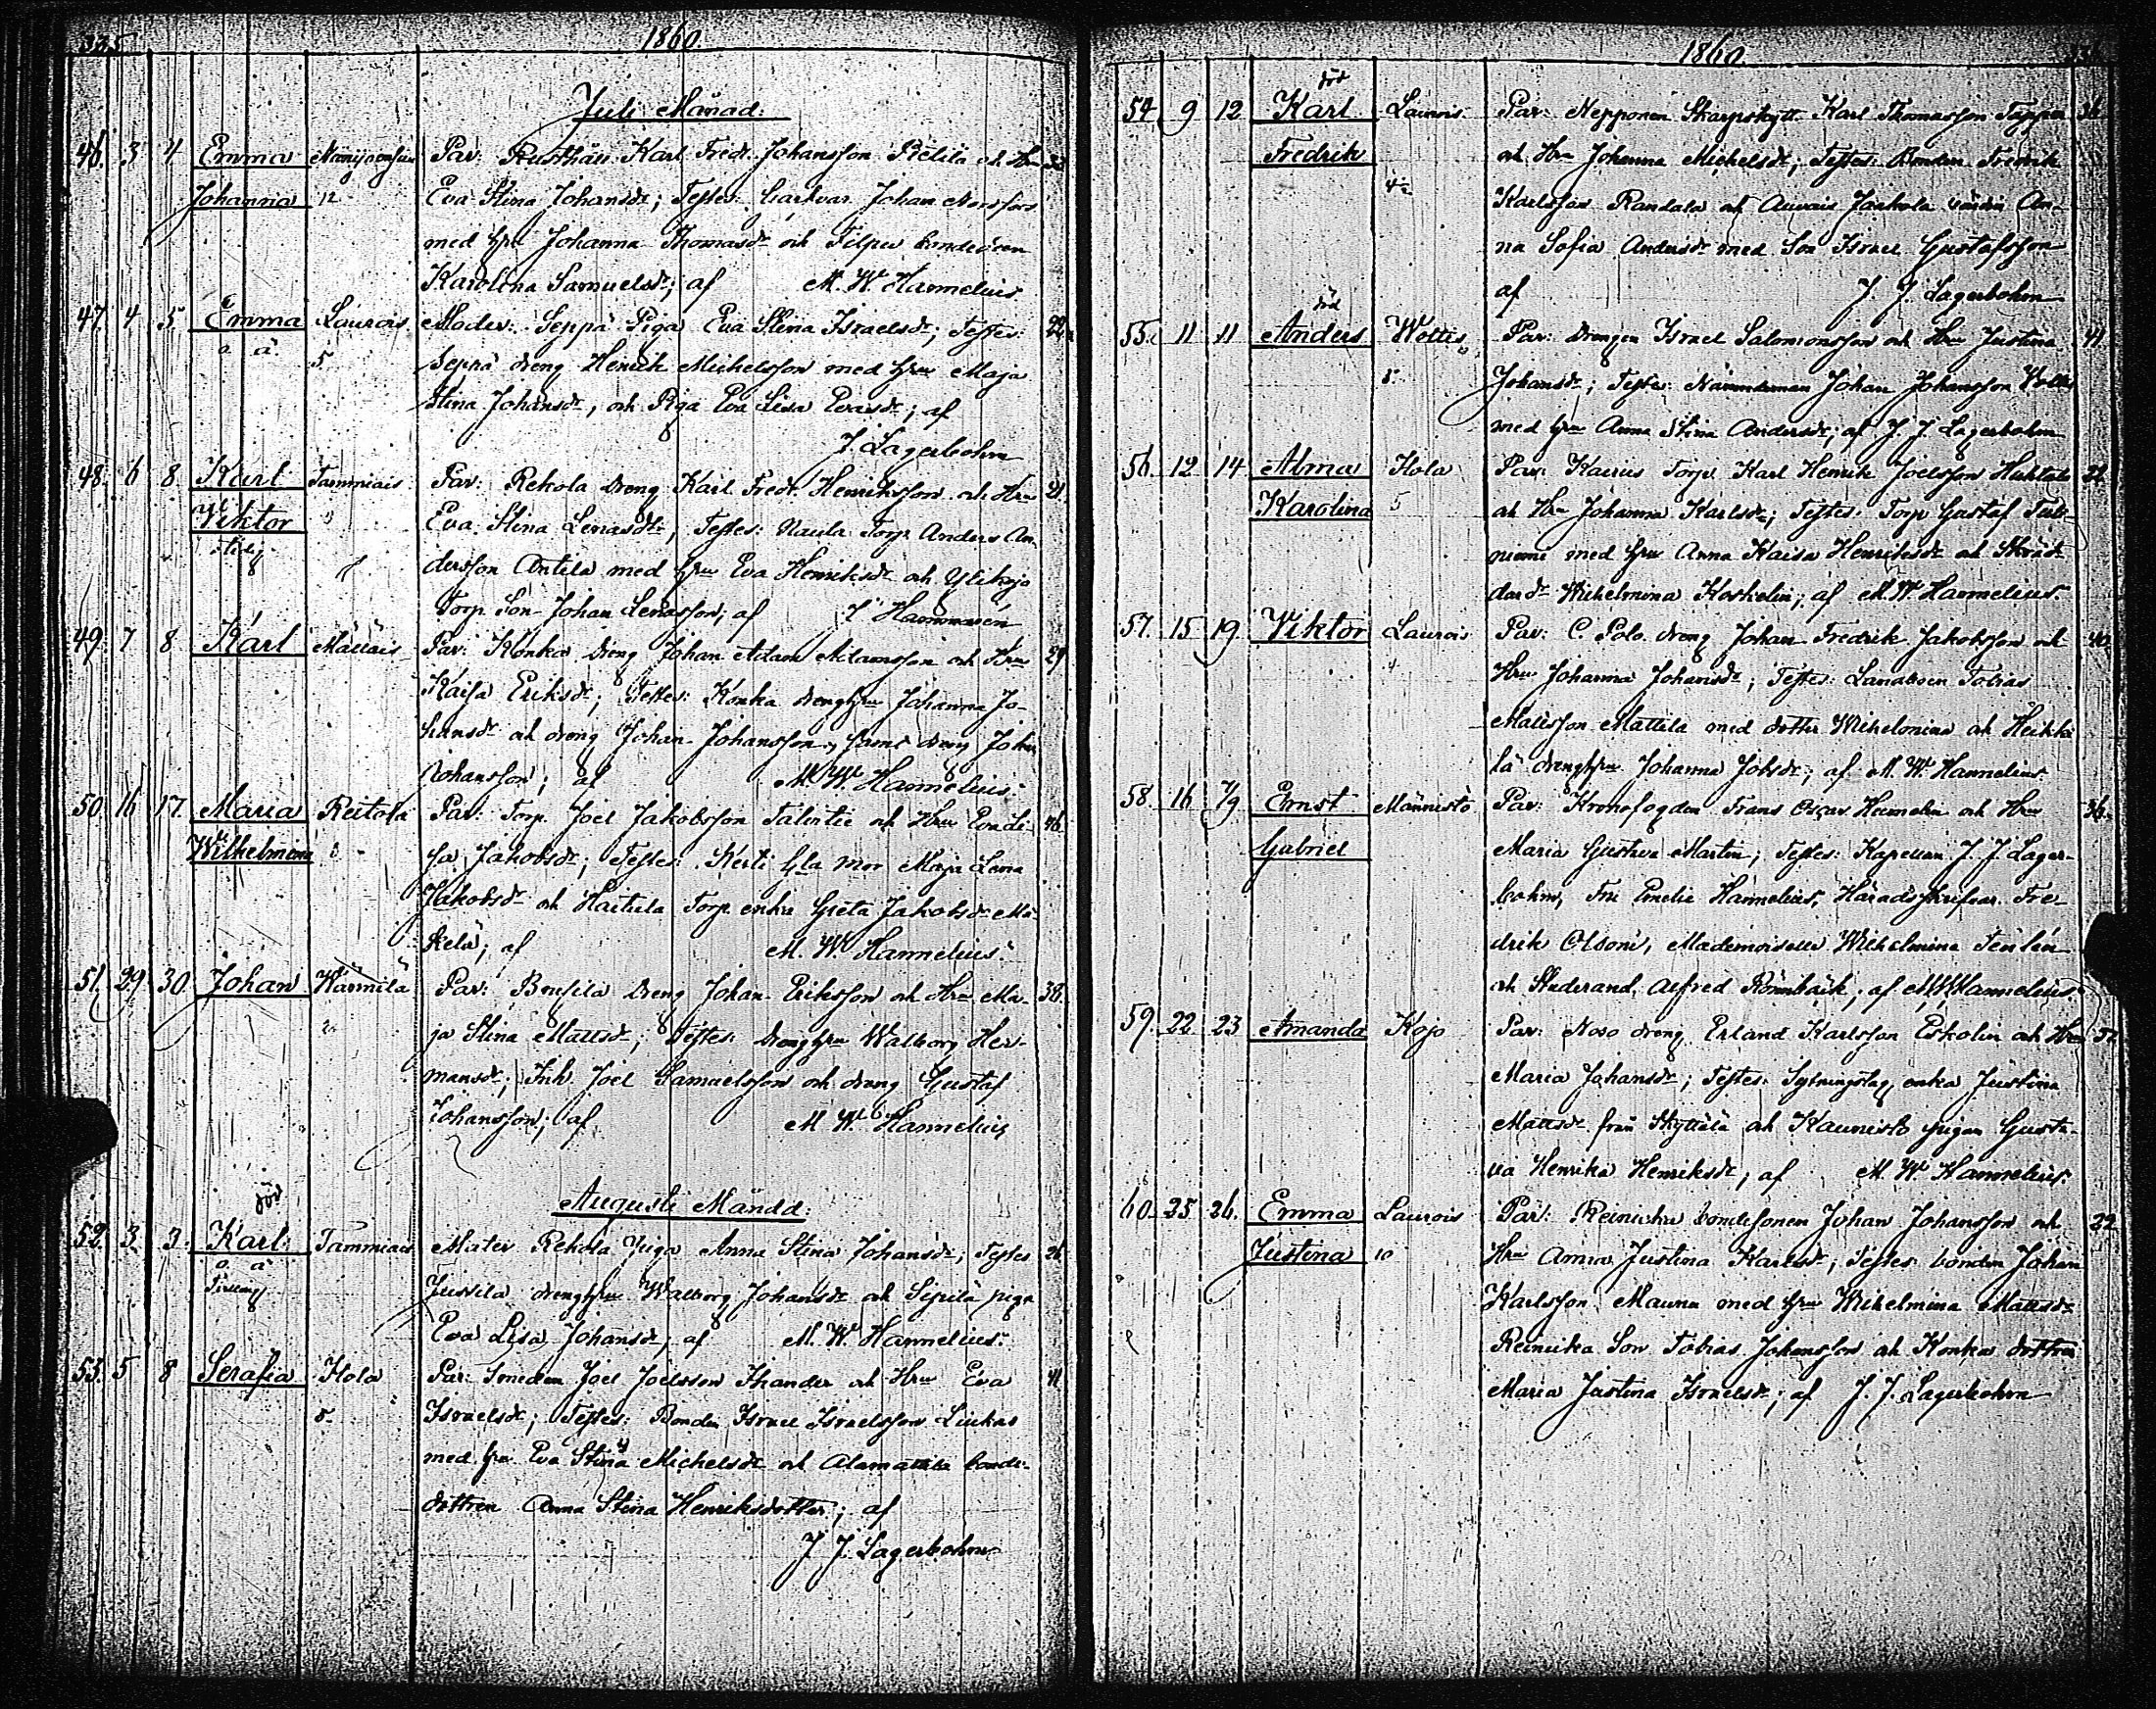 335
1860.
Juli Månad:
46. 3 4 Emma Par: Rusthåll. Karl Fredr. Johansson Pietilä och Hru 32
Johanna 12 Eva Stina Johansdr; Testes: Garfvar. Johan
med hru Johanna Thomasdr och Filpus bondeson
Karolina Samuelsdr; af M. W. Hannelius
47. 4 5 Emma Laurois Moder: Seppä Piga Eva Stina Israelsdr; Testes: 22
o. ä. 5 Seppä dreng Henrik Michelsson med hru Maja
Stina Johansdr, och Piga Eva Lisa Evasdr; af
J. Lagerbohm
48. 6 8 Karl Tammiais Par: Rekola Dreng Karl Fredr. Henriksson och Hru 21.
Viktor Eva Stina Lenasdr; Testes: Naula Torp. Anders An-
dersson Antila med hru Eva Henriksdr och Ylikojo
Torp. Son Johan Lenasson; af J Hammarén
49. 7 8 Karl Mälläis Par: Konka Dreng Johan Adam Adamsson och Hru 29
Kaisa Eriksdr; Testes: Konka drenghru Johanna Jo-
hansdr och dreng Johan Johansson, samt dreng Johan
Johansson; af M. W. Hannelius.
50. 16 17. Maria Reitola Par: Torp. Joel Jakobsson Talvitie och Hru Eva Li- 46
Wilhelmina sa Jakobsdr; Testes: Kerti Gla mor Maja Lena
Jakobsdr och Haitula Torp. enka Greta Jakobsdr Mä-
kelä; af M. W. Hannelius.
51. 29. 30. Johan Wärmilä Par: Dreng Johan Eriksson och Hru Ma- 38.
ja Stina Mattsdr; Testes: Drenghru Walborg Her-
mansdr; Inh. Joel Samuelsson och dreng Gustaf
Johansson; af M. W. Hannelius
Augusti Månad:
död
52. 3. 3. Karl Tammiais Mater Rekola Piga Anna Stina Johansdr; Testes 26
o. ä. Jussila drenghru Walborg Johansdr och Sipilä piga
Eva Lisa Johansdr; af M. W. Hannelius.
53. 5 8 Serafia Hola Par: Smeden Joel Joelsson Ihander och Hru Eva 41
5 Israelsdr; Testes: Bonden Israel Israelsson Liukas
med hru Eva Stina Michelsdr och Alamattila bonde-
dottren Anna Stina Henriksdotter; af
J. J. Lagerbohm
1860
död
54 9 12 Karl Laurois Par: Nepponen Skarpskytt Karl Thomasson Tapper 36
Fredrik och Hru Johanna Michelsdr; Testes: Bonden Fredrik
Karlsson Randala och Auvais Jaakola värdin An-
na Sofia Andersdr med Son Israel Gustafsson
af J. J. Lagerbohm
död
55. 11 11 Anders Woltis Par: Drengen Israel Salomonsson och Hru Justina 41
5 Johansdr; Testes: Nämndeman Johan Johansson
med hru Anna Stina Andersdr; af J. J. Lagerbohm
56. 12 14 Alma Hola Par: Kairis Torp. Karl Henrik Joelsson Huhtala 22
Karolina 5 och Hru Johanna Karlsdr; Testes: Torp. Gustaf
niemi med hru Anna Kaisa Henriksdr och Skräd-
dardr Wilhelmina Koskelin; af M. W. Hannelius.
57. 15 19 Viktor Laurois Par: C. Polo dreng Johan Fredrik Jakobsson och 40
4 Hru Johanna Johansdr; Testes: Landbon Tobias
Mattsson Mattila med dotter Wilhelmina och Heikki-
lä drenghru Johanna Jobsdr; af M. W. Hannelius.
58. 16 7/9 Ernst Männistö Par: Kronofogden Frans Oscar Heimelin och Hru 36.
Gabriel Maria Gustava Martin; Testes: Kapellan J. J. Lager-
bohm, Fru Emelie Hannelius, Häradsskrifvar. Fre-
drik Olsoni, Mademoiselle Wilhelmina Tenlén
och Studerand. Alfred Rönnbäck; af M. W. Hannelius.
59. 22. 23 Amanda Kojo Par: Noso dreng Erland Karlsson Eskolin och Hru
Maria Johansdr; Testes: Sytningstag. enka Justina
Mattsdr från Skyttälä och Kaunisto pigan Gusta-
va Henrika Henriksdr; af M. W. Hannelius.
60. 25. 26. Emma Laurois Par: Reinikka bondesonen Johan Johansson och 22
Justina 10 Hru Anna Justina Karlsdr; Testes bonden Johan
Karlsson Mauna med hru Wilhelmina Mattsdr
Reinikka Son Tobias Johansson och Konka dottren
Maria Justina Israelsdr; af J. J. Lagerbohm